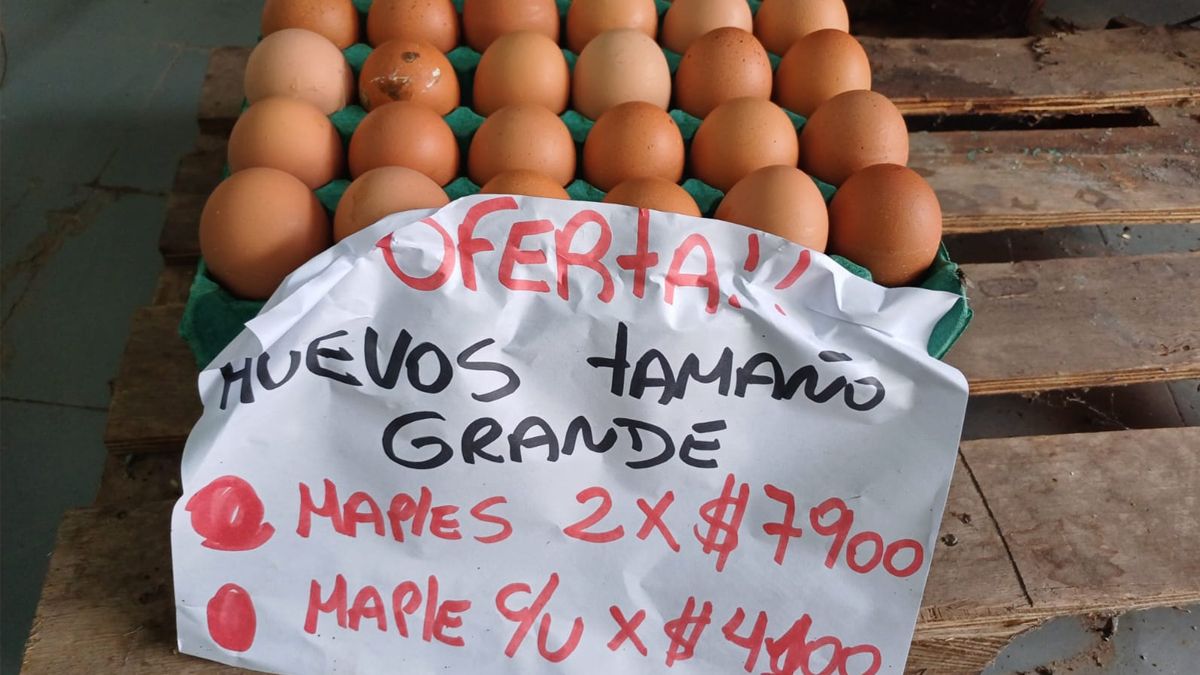 OFERTA!!
HUEVOS TAMAÑO
GRANDE
MAPLES 2 X $7900
MAPLE C/U X $4100